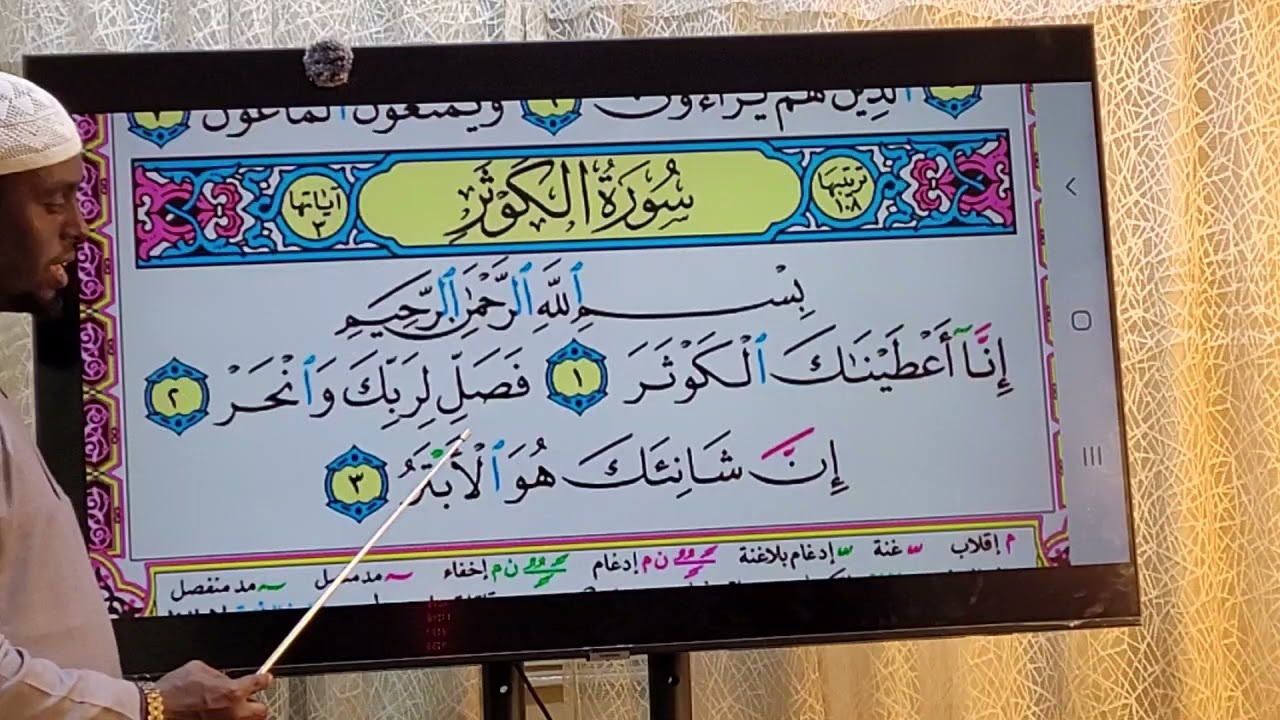 ٱلَّذِينَ هُمْ يُرَآءُونَ ٦ وَيَمْنَعُونَ ٱلْمَاعُونَ ٧
ترتيبها ١٠٨ سُورَةُ الْكَوْثَرِ آياتها ٣
بِسْمِ ٱللَّهِ ٱلرَّحْمَٰنِ ٱلرَّحِيمِ
إِنَّآ أَعْطَيْنَٰكَ ٱلْكَوْثَرَ ١ فَصَلِّ لِرَبِّكَ وَٱنْحَرْ ٢
إِنَّ شَانِئَكَ هُوَ ٱلْأَبْتَرُ ٣
م إقلاب غنة إدغام بلاغنة ن م إدغام ن م إخفاء مد متصل مد منفصل